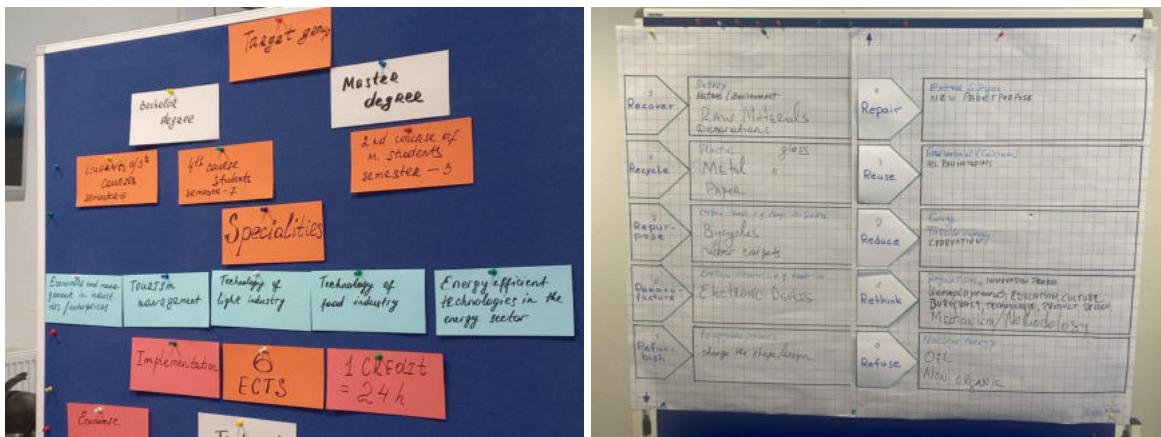 Target group
Bachelor
degree
Master
degree
students of 3rd
courses
semester-6
4th course
students
semester-7
2nd course of
M. students
semester - 3
Specialities
Economics and mana-
gement in indust
ries/enterprices
Tourism
management
Technology of
light industry
Technology of
food industry
Energy efficient
technologies in the
energy sector
Implementation
6
ECTS
1 CREdit
= 24h
Economic
9
Recover
Energy
Nature / Environment
RAW MATERIALS
8
Recycle
Plastic glass
Metal "
PAPER
7
Repur-
pose
Bycycles
rubber carpets
6
Remanu-
facture
Electronic Devises
5
Refur-
bish
change the shape/design
4
Repair
NEW PRODUCT PURPOSE
3
Reuse
2
Reduce
Energy
CORRUPTION
1
Rethink
UNEMPLOYMENT, EDUCATION, CULTURE
BUROCRACY, TECHNOLOGIE, PRODUCT DESIGN
Mechanism/Metodology
0
Refuse
Nuclear Energy
OIL
Non-organic